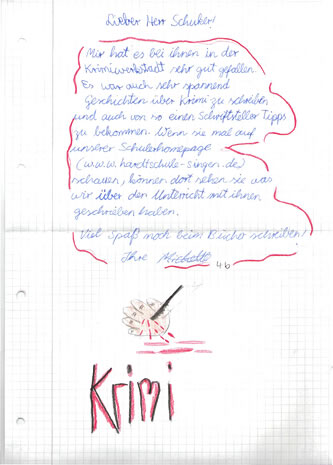 Lieber Herr Schuker!
Mir hat es bei ihnen in der
Krimiwerkstadt sehr gut gefallen.
Es war auch sehr spannend
Geschichten über Krimi zu schreiben
und auch von so einen Schriftsteller Tipps
zu bekommen. Wenn sie mal auf
unserer Schulerhomepage
(www.hardtschule-singen.de)
schauen, können dort sehen sie was
wir über den Unterricht mit ihnen
geschrieben haben.
Viel Spaß noch beim Bücher schreiben!
Ihre
4b
Krimi